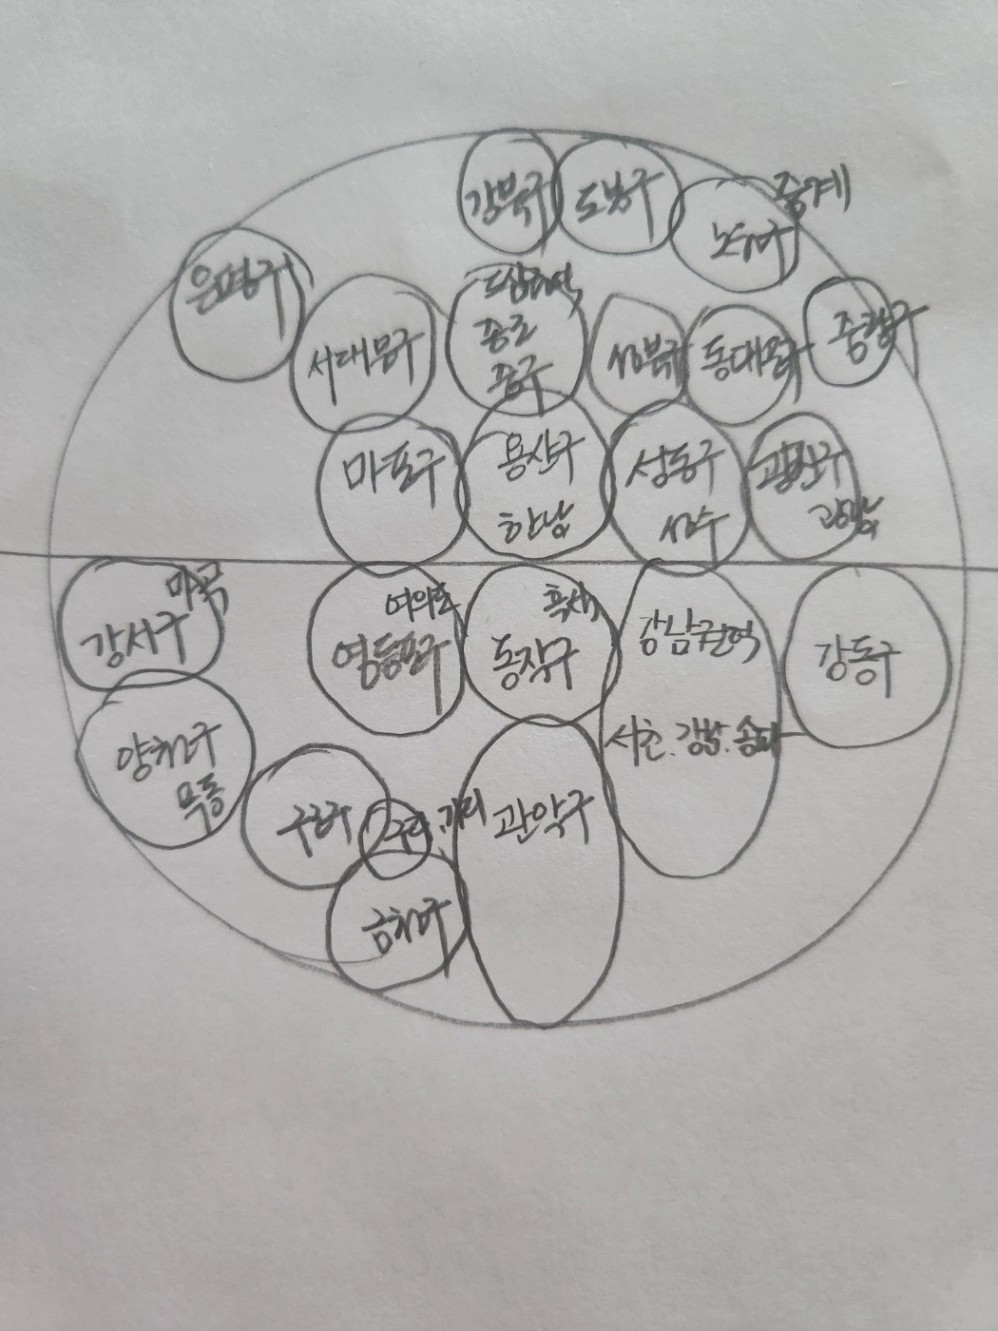 강북구
도봉구
중계
노원구
은평구
서대문구
도심권역
종로
중구
성북구
동대문구
중랑구
마포구
용산구
한남
성동구
성수
광진구
광장
마곡
강서구
여의도
영등포구
흑석
동작구
강남권역
서초.강남.송파
강동구
양천구
목동
구로구
구디.가디
관악구
금천구